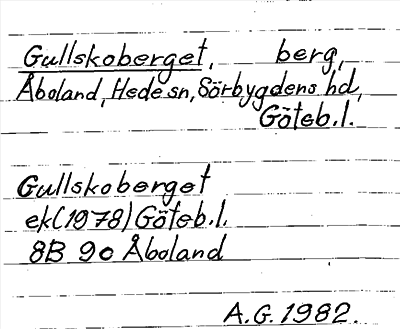 Gullskoberget, berg,
Åboland, Hede sn, Sörbygdens hd,
Göteb.l.
Gullskoberget
ek(1978) Göteb.l.
8B 9c Åboland
A.G. 1982.